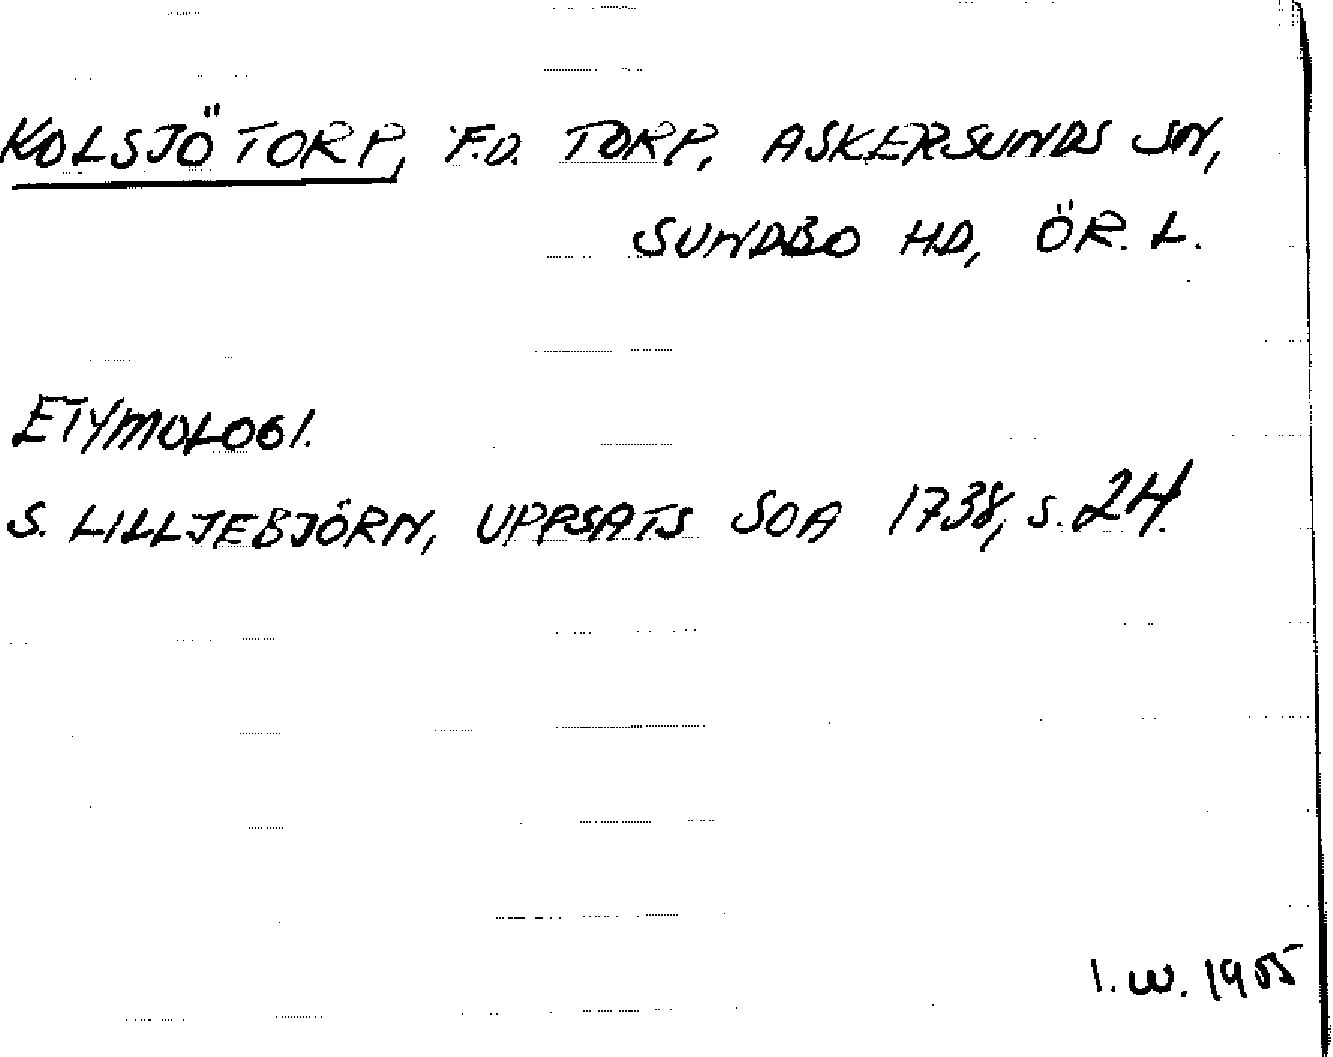 KOLSJÖTORP, F.D. TORP, ASKERSUNDS SN,
SUNDBO HD, ÖR. L.
ETYMOLOGI.
S. LILLJEBJÖRN, UPPSATS SOA 1738, S. 24.
I. W. 1955